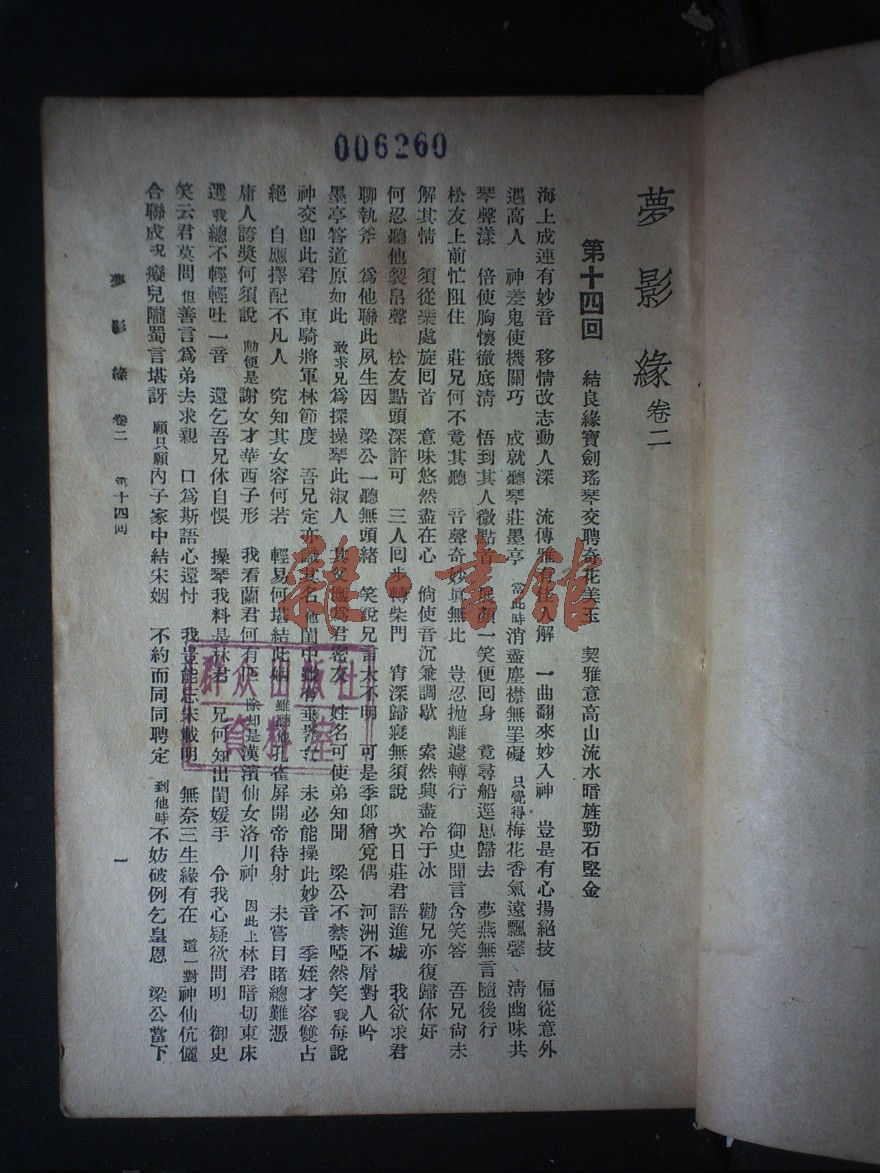 006260
夢影緣 卷二
第十四回 結良緣寶劍瑤琴交聘奇花美玉 契雅意高山流水暗旌勁石堅金
海上成連有妙音 移情改志動人深 流傳雅有佳人解 一曲翻來妙入神 豈是有心揚絕技 偏從意外
遇高人 神差鬼使機關巧 成就聽琴莊墨亭 當此時消盡塵襟無罣礙 只覺得梅花香氣遠飄馨 清幽味共
琴聲漾 倍使胸懷徹底清 悟到其人微點首 展顏一笑便回身 竟尋船逕思歸去 夢燕無言隨後行
松友上前忙阻住 莊兄何不竟其聽 音聲奇妙眞無比 豈忍拋離遽轉行 御史聞言含笑答 吾兄尙未
解其情 須從樂處旋回首 意味悠然盡在心 倘使音沉兼調歇 索然興盡冷于冰 勸兄亦復歸休好
何忍聽他裂帛聲 松友點頭深許可 三人回步轉柴門 宵深歸寢無須說 次日莊君語進城 我欲求君
聊執斧 爲他聯此夙生因 梁公一聽無頭緒 笑說兄言大不明 可是季郎猶覓偶 河洲不屑對人吟
墨亭答道原如此 敢求兄爲探操琴此淑人 其父 爲君密友 姓名可使弟知聞 梁公不禁啞然笑 我每說
神交卽此君 車騎將軍林節度 吾兄定亦 其名 他閨中 未必能操此妙音 季姪才容雙占
絕 自應擇配不凡人 究知其女容何若 輕易何堪結此 雖聽他孔雀屏開帝待射 未嘗目睹總難憑
庸人誇獎何須說 動便是謝女才華西子形 我看蘭君何有 除却是漢濱仙女洛川神 因此上林君暗切東床
選 我總不輕輕吐一音 還乞吾兄休自悞 操琴我料是林君 兄何知出閨媛手 令我心疑欲問明 御史
笑云君莫問 但善言爲弟去求親 口爲斯語心還忖 我豈能忘朱戴明 無奈三生緣有在 這一對神仙伉儷
合聯成 況癡兒隴蜀言堪訝 願只願內子家中結朱姻 不約而同同聘定 到他時不妨破例乞皇恩 梁公當下
夢影緣 卷二 第十四回 一
雜·書館
群众出版社
資料室